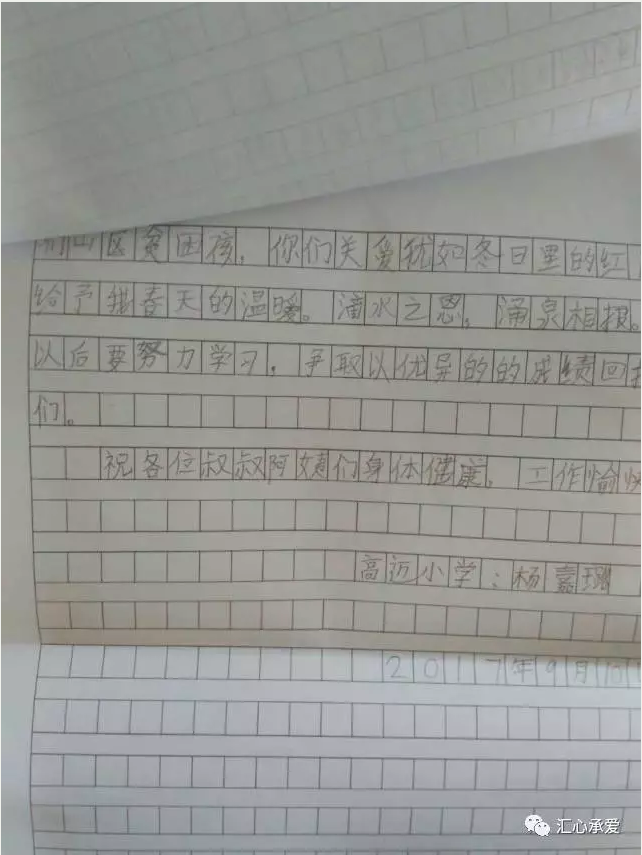 们山区贫困孩，你们关爱犹如冬日里的红
给予我春天的温暖。滴水之恩，涌泉相报。
以后要努力学习，争取以优异的的成绩回报
们。
祝各位叔叔阿姨们身体健康，工作愉快
高近小学：杨嘉璐
2017年9月10
汇心承爱